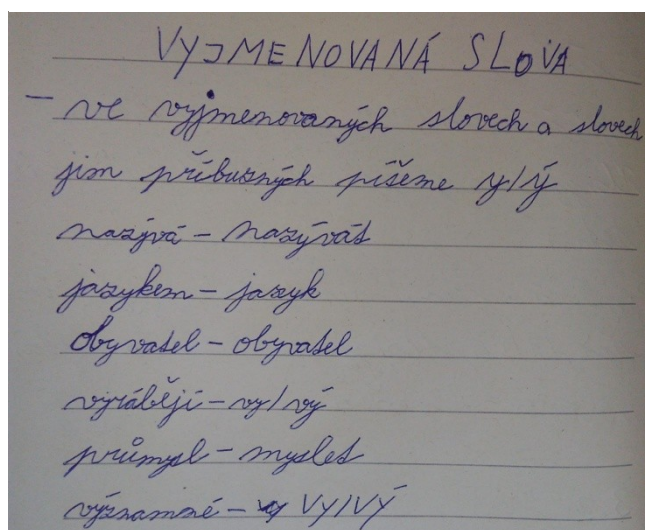 VYJMENOVANÁ SLOVA
- ve vyjmenovaných slovech a slovech
jim příbuzných píšeme y/ý
nazývá - nazývat
jazykem - jazyk
obyvatel - obyvatel
vyrábějí - vy/vý
průmysl - myslet
významné - VY/VÝ